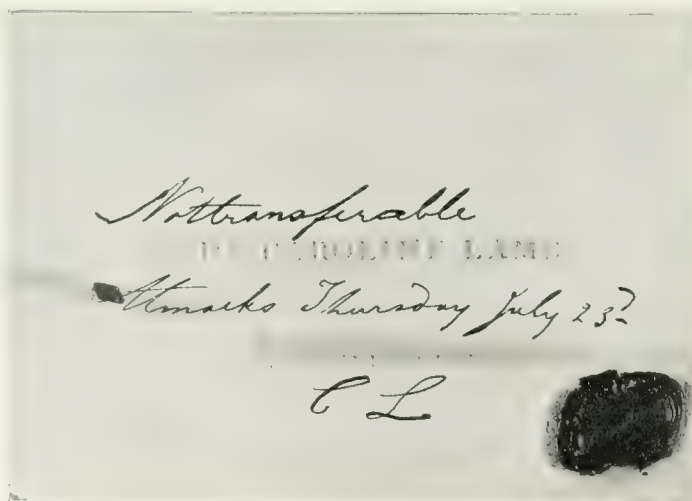 Not transferable
Almacks Thursday July 23d
C L